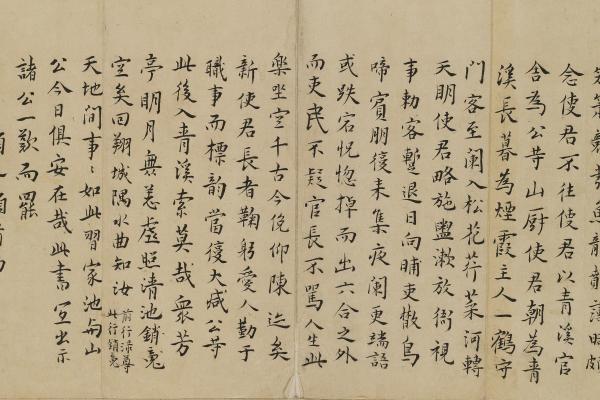 念使君不往使君以青溪官
舍為公等山厨使君朝為青
溪長暮為煙霞主人一鶴守
門客至闌入松花芥菜河轉
天明使君略施盥漱放衙視
事勅客暫退日向晡吏散鳥
啼賓朋復来集夜闌更端語
或跌宕怳惚掉而出六合之外
而吏民不疑官長不罵人生此
樂寔千古今俛仰陳迹矣
新使君長者鞠躬愛人勤于
職事而標韵當復大減公等
此後入青溪索莫哉衆芳
亭明月無恙虛照清池銷魂
空矣回翔城隅水曲知汝
前行渌尊
此行銷魂
天地間事〻如此習家池与山
公今日俱安在哉此書寫出示
諸公一歎而罷